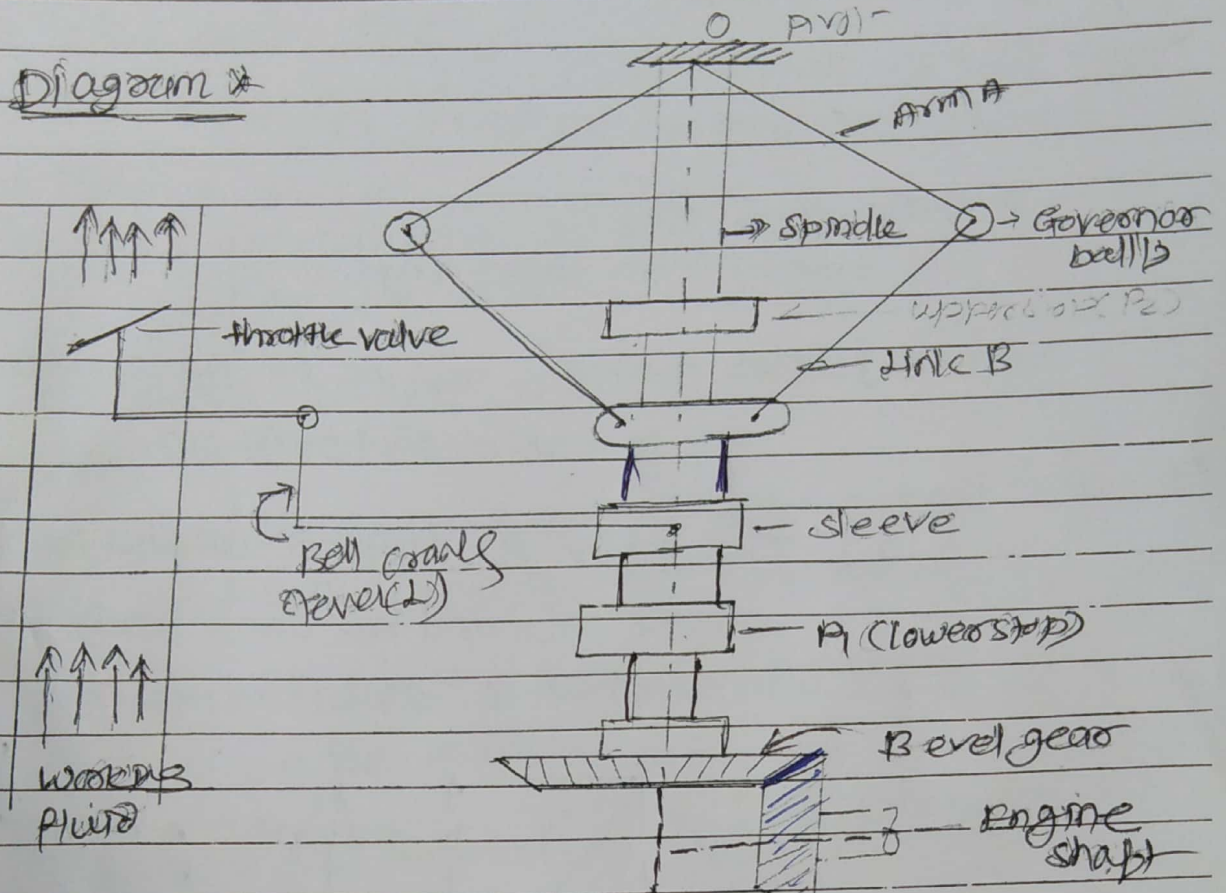 O Pivot
Diagram *
Arm A
spindle
Governor
ball B
upper stop (P2)
throttle valve
Link B
sleeve
Bell crank
lever(L)
P1 (lower stop)
Bevel gear
working
fluid
Engine
shaft